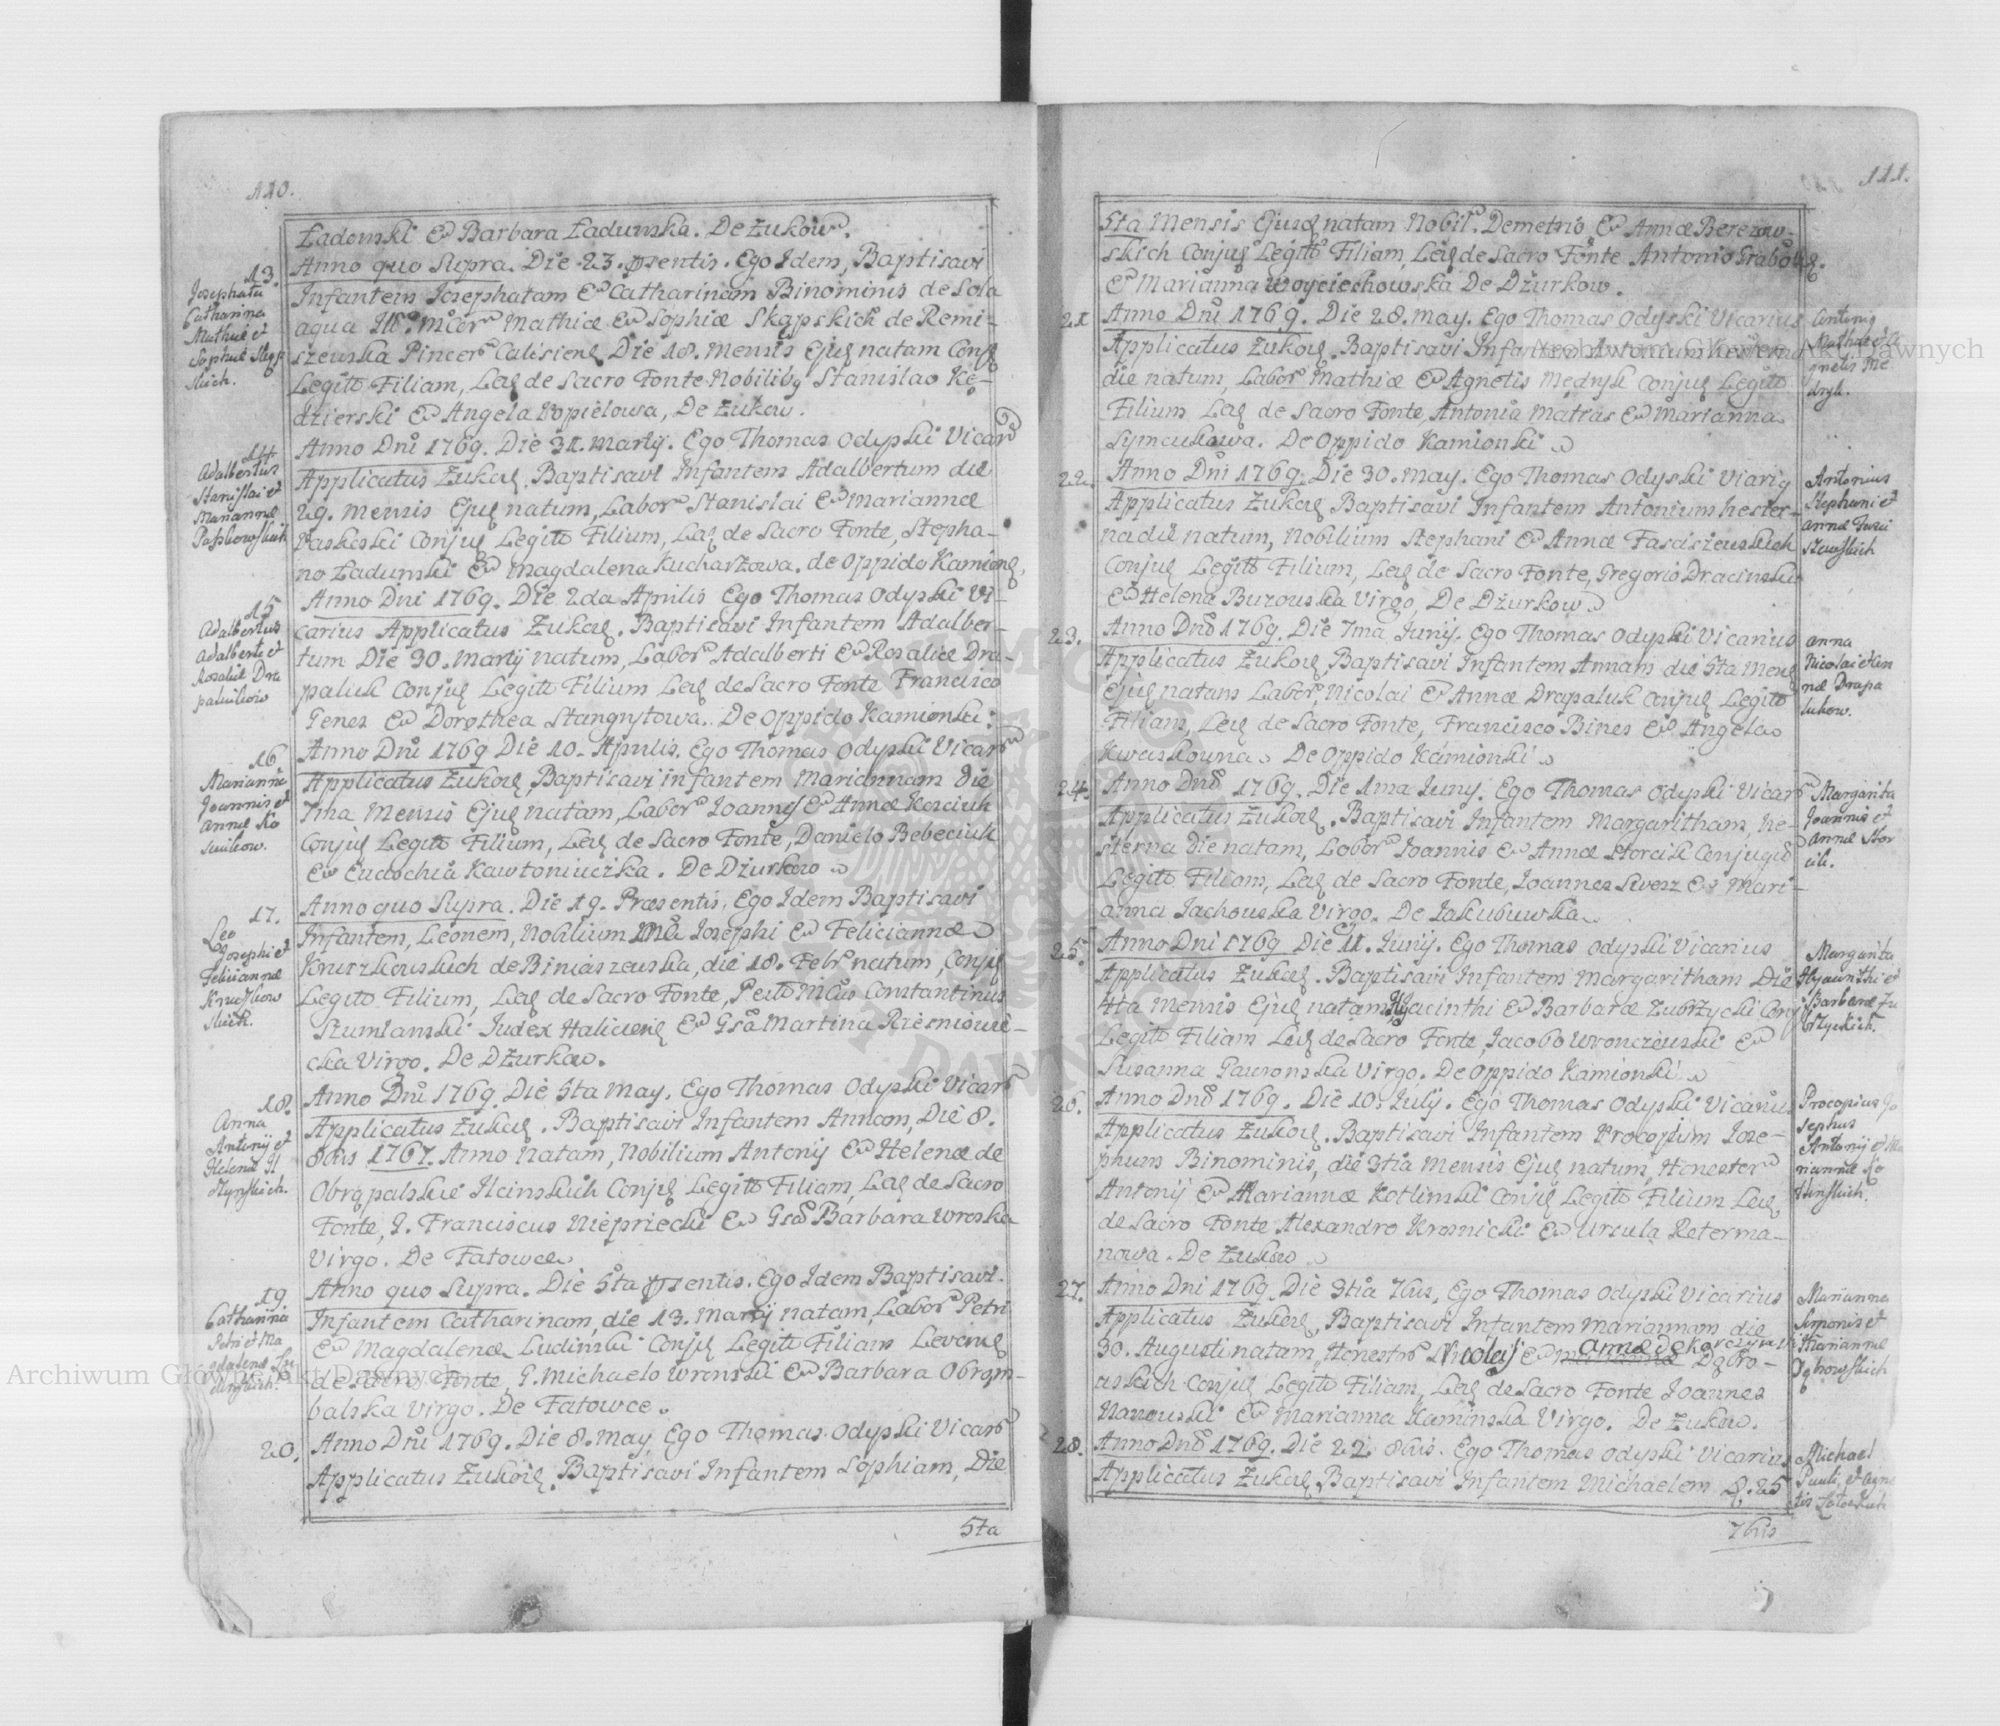 110.
Ładomski Et Barbara Ładunska. De Żukow.
13.
Josephata
Catharina
Mathiæ et
Sophiæ Skąp
skich.
Anno quo Supra. Die 23. præsentis. Ego Idem, Baptisavi
Infantem Josephatam Et Catharinam Binominis de Sola
aqua Mathiæ Et Sophiæ Skąpskich de Remi-
szewska Pincer Calisiens Die 18. Mensis Ejus natam Conj
Legitt Filiam, Lev de Sacro Fonte Nobilibus Stanislao Kę-
dzierski Et Angela Kopielowa, De Żukow.
14.
Adalbertus
Stanislai et
Mariannæ
Paskowskich
Anno Dni 1769. Die 31. Martij. Ego Thomas Odyski Vicar
Applicatus Żukov. Baptisavi Infantem Adalbertum die
29. Mensis Ejus natum, Labor Stanislai Et Mariannæ
Paskoski Conjug Legitt Filium, Lev de Sacro Fonte, Stepha-
no Ładunski Et Magdalena Kucharzowa. de Oppido Kamionk
15
Adalbertus
Adalberti et
Rosaliæ Dra
palukow
Anno Dni 1769. Die 2da Aprilis Ego Thomas Odyski Vi-
carius Applicatus Żukov. Baptisavi Infantem Adalber-
tum Die 30. Martij natum, Labor Adalberti Et Rosaliæ Dra-
paluk Conjug Legitt Filium Lev de Sacro Fonte Francisco
Genes Et Dorothea Stangrytowa. De Oppido Kamionki.
16
Marianna
Joannis et
Annæ Ko
sciukow.
Anno Dni 1769 Die 10. Aprilis. Ego Thomas Odyski Vicar
Applicatus Żukov, Baptisavi infantem Mariannam Die
7ma Mensis Ejus natam, Labor Joannes Et Annæ Kosciuk
Conjug Legitt Filium, Lev de Sacro Fonte, Danielo Bebeciuk
Et Eudochia Kawtoniuczka. De Dżurkow
17.
Leo
Josephi et
Felicianæ
Kruszkow
skich.
Anno quo Supra. Die 19. Præsentis. Ego Idem Baptisavi
Infantem, Leonem, Nobilium Josephi Et Felicianæ
Kruszkowskich de Biniaszewska, die 18. Febr natum, Conjug
Legito Filium, Lev de Sacro Fonte, Constantinus
Szumlanski Judex Halicien Et Martina
cka Virgo. De Dżurkow.
18.
Anna
Antonij et
Helenæ Il
skich.
Anno Dni 1769. Die 5ta May. Ego Thomas Odyski Vicar
Applicatus Żukov. Baptisavi Infantem Annam, Die 8.
8bris 1767. Anno natam, Nobilium Antonij Et Helenæ de
Obrąpalskie Ilcinskich Conjug Legitt Filiam, Lev de Sacro
Fonte, G. Franciscus Niepriecki Et Barbara Wroska
Virgo. De Fatowce
19
Catharina
Petri et Ma
gdalenæ Lu
dinskich.
Anno quo Supra. Die 5ta præsentis. Ego Idem Baptisavi.
Infantem Catharinam, die 13. Martij natam, Labor Petri
Et Magdalenæ Ludinski Conjug Legitt Filiam Levine
de Sacro Fonte, G. Michaelo Wronski Et Barbara Obrąm-
balska Virgo. De Fatowce.
20.
Anno Dni 1769. Die 8. May Ego Thomas. Odyski Vicar
Applicatus Żukov. Baptisavi Infantem Sophiam, Die
5ta
111.
5ta Mensis Ejusq natam Nobil. Demetrio Et Annæ Berezow-
skich Conjug Legitt Filiam, Lev de Sacro Fonte Antonio Grabo
Et Marianna Woyciechowska De Dżurkow.
21
Anno Dni 1769. Die 28. May. Ego Thomas Odyski Vicarius
Applicatus Żukov. Baptisavi Infantem Antonium hesterno
die natum, Labor Mathiæ Et Agnetis Mędryk Conjug Legitt
Filium Lev de Sacro Fonte, Antonia Matras Et Marianna
Symcukowa. De Oppido Kamionki
Antonig
Mathiæ et A
gnetis Mę
dryk.
22.
Anno Dni 1769. Die 30. May. Ego Thomas Odyski Viarig
Applicatus Żukov Baptisavi Infantem Antonium hester-
na die natum, Nobilium Stephani Et Annæ Fasciszewskich
Conjug Legitt Filium, Lev de Sacro Fonte, Gregorio Dracinski
Et Helena Buzouska Virgo, De Dżurkow
Antonius
Stephani et
Annæ Fasci
szewskich
23.
Anno Dni 1769. Die 7ma Junij. Ego Thomas Odyski Vicarius
Applicatus Żukov, Baptisavi Infantem Annam die 5ta Mens
Ejus natam Labor, Nicolai Et Annæ Drapaluk Conjug Legitt
Filiam, Lev de Sacro Fonte, Francisco Bines Et Angela
Kwaskowna De Oppido Kamionki
Anna
Nicolai et An
næ Drapa
lukow.
24.
Anno Dni 1769. Die 1ma Juny. Ego Thomas Odyski Vicar
Applicatus Żukov. Baptisavi Infantem Margaritham, he-
sterna die natam, Labor Joannis Et Annæ Storcik Conjugum
Legitt Filiam, Lev de Sacro Fonte, Joannes Swerz Et Mari-
anna Jachouska Virgo. De Jakubuwka
Margarita
Joannis et
Annæ Stor
cik.
25.
Anno Dni 1769 Die 11. Junij. Ego Thomas Odyski Vicarius
Applicatus Żukov. Baptisavi Infantem Margaritham Die
4ta Mensis Ejus natam Hyacinthi Et Barbaræ Zubrzycki Conj
Legitt Filiam Lev de Sacro Fonte, Jacobo Wronczewski Et
Susanna Gawronska Virgo. De Oppido Kamionki
Margarita
Hyacinthi et
Barbaræ Zu
brzyckich.
26.
Anno Dni 1769. Die 10. July. Ego Thomas Odyski Vicarius
Applicatus Żukov. Baptisavi Infantem Procopium Jose-
phum Binominis, die 3tia Mensis Ejus natum, Honestor
Antonij Et Mariannæ Kotlinski Conjug Legitt Filium Lev
de Sacro Fonte Alexandro Krosnicki Et Ursula Keterma-
nowa. De Żukow
Procopius Jo
sephus
Antonij et Ma
riannæ Ko
tlinskich.
27.
Anno Dni 1769. Die 3tia 7bris. Ego Thomas Odyski Vicarius
Applicatus Żukov, Baptisavi Infantem Mariannam die
30. Augusti natam, Honestor Nicolaij Et Annæ de
Dąbro-
askich Conjug Legitt Filiam, Lev de Sacro Fonte Joannes
Nanouski Et Marianna Kaminska Virgo. De Żukow.
Marianna
Simonis et
Mariannæ
28.
Anno Dni 1769. Die 22. 8bris. Ego Thomas Odyski Vicarius
Applicatus Żukov, Baptisavi Infantem Michaelem d. 25
Michael
Pauli et Agne
tis
7bris
Archiwum Główne Akt Dawnych
Archiwum Główne Akt Dawnych